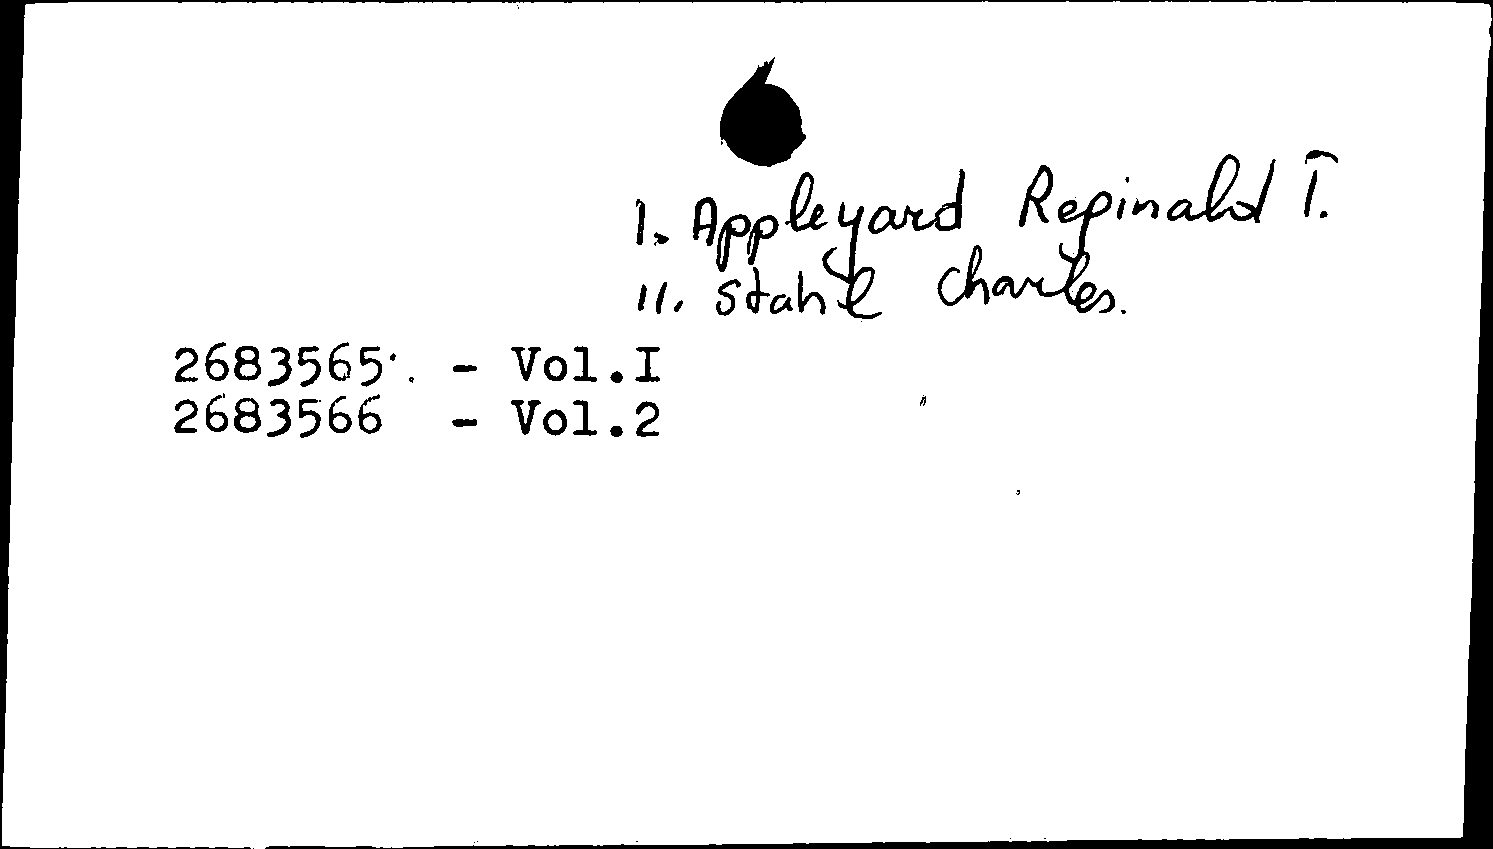 I. Appleyard Reginald T.
II. Stahl Charles.
2683565. - Vol.I
2683566 - Vol.2